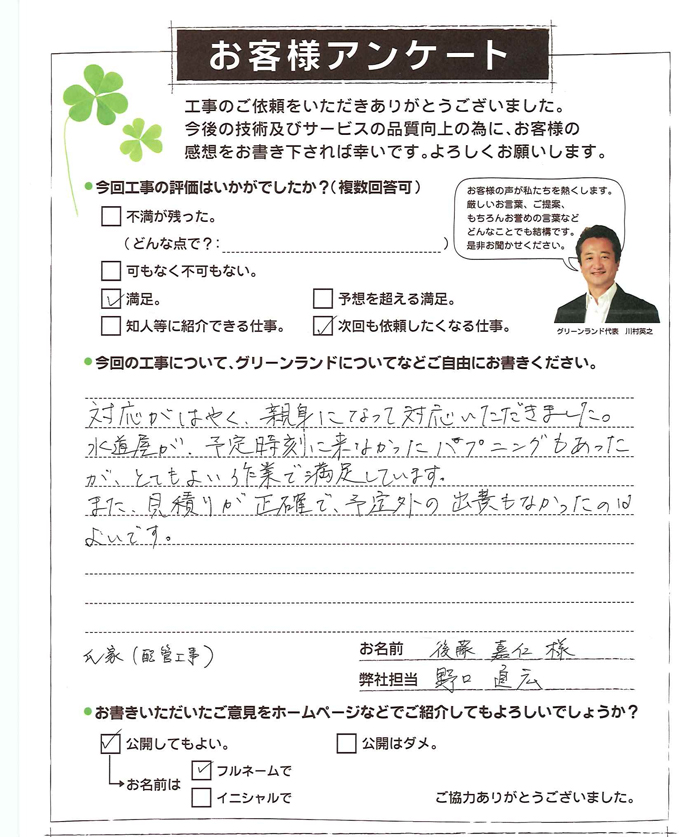 お客様アンケート
工事のご依頼をいただきありがとうございました。
今後の技術及びサービスの品質向上の為に、お客様の
感想をお書き下されば幸いです。よろしくお願いします。
●今回工事の評価はいかがでしたか?(複数回答可)
不満が残った。
(どんな点で?: )
可もなく不可もない。
満足。
予想を超える満足。
知人等に紹介できる仕事。
次回も依頼したくなる仕事。
お客様の声が私たちを熱くします。
厳しいお言葉、ご提案、
もちろんお誉めの言葉など
どんなことでも結構です。
是非お聞かせください。
グリーンランド代表 川村英之
●今回の工事について、グリーンランドについてなどご自由にお書きください。
対応がはやく、親身になって対応いただきました。
水道屋が、予定時刻に来なかったハプニングもあった
が、とてもよい作業で満足しています。
また、見積りが正確で、予定外の出費もなかったのは
よいです。
(配管工事)
お名前 後藤 嘉仁 様
弊社担当 野口 直広
●お書きいただいたご意見をホームページなどでご紹介してもよろしいでしょうか?
公開してもよい。
公開はダメ。
お名前は
フルネームで
イニシャルで
ご協力ありがとうございました。